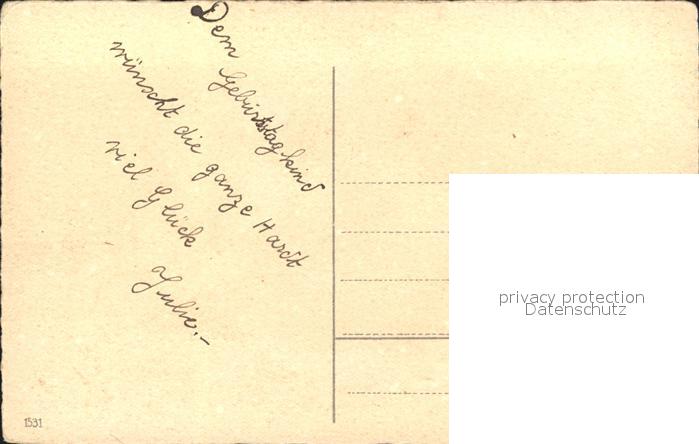 Dem
Geburtstagkind
wünscht die ganze Hardt
viel Glück
Julie.-
1531
privacy protection
Datenschutz